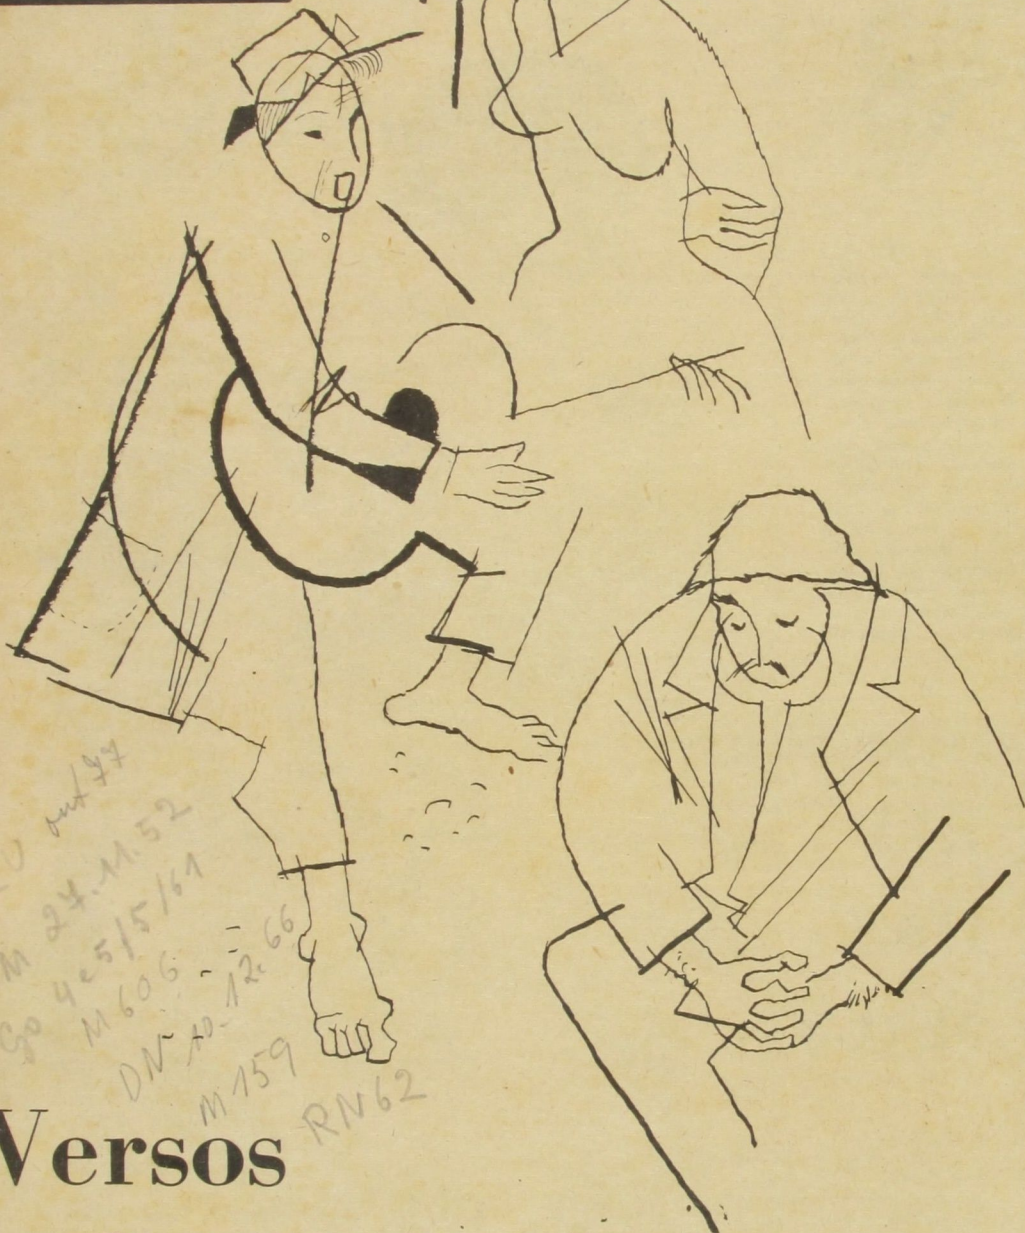 out 77
M 27.11.52
Go 4e5/5/61
M 606
DN 10.12.66
M 159
RN62
Versos